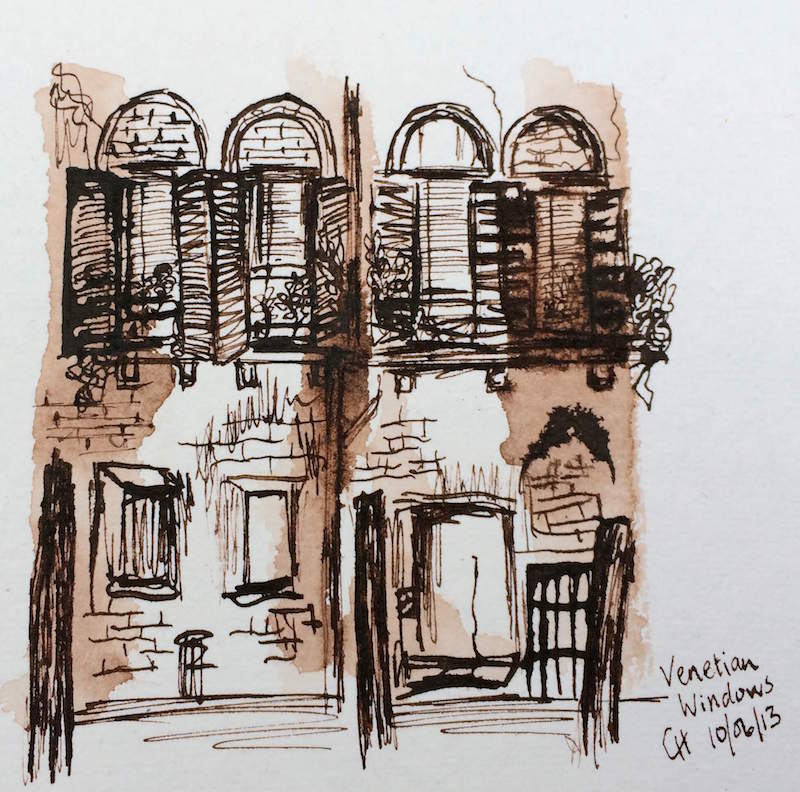 Venetian
Windows
CH 10/06/13